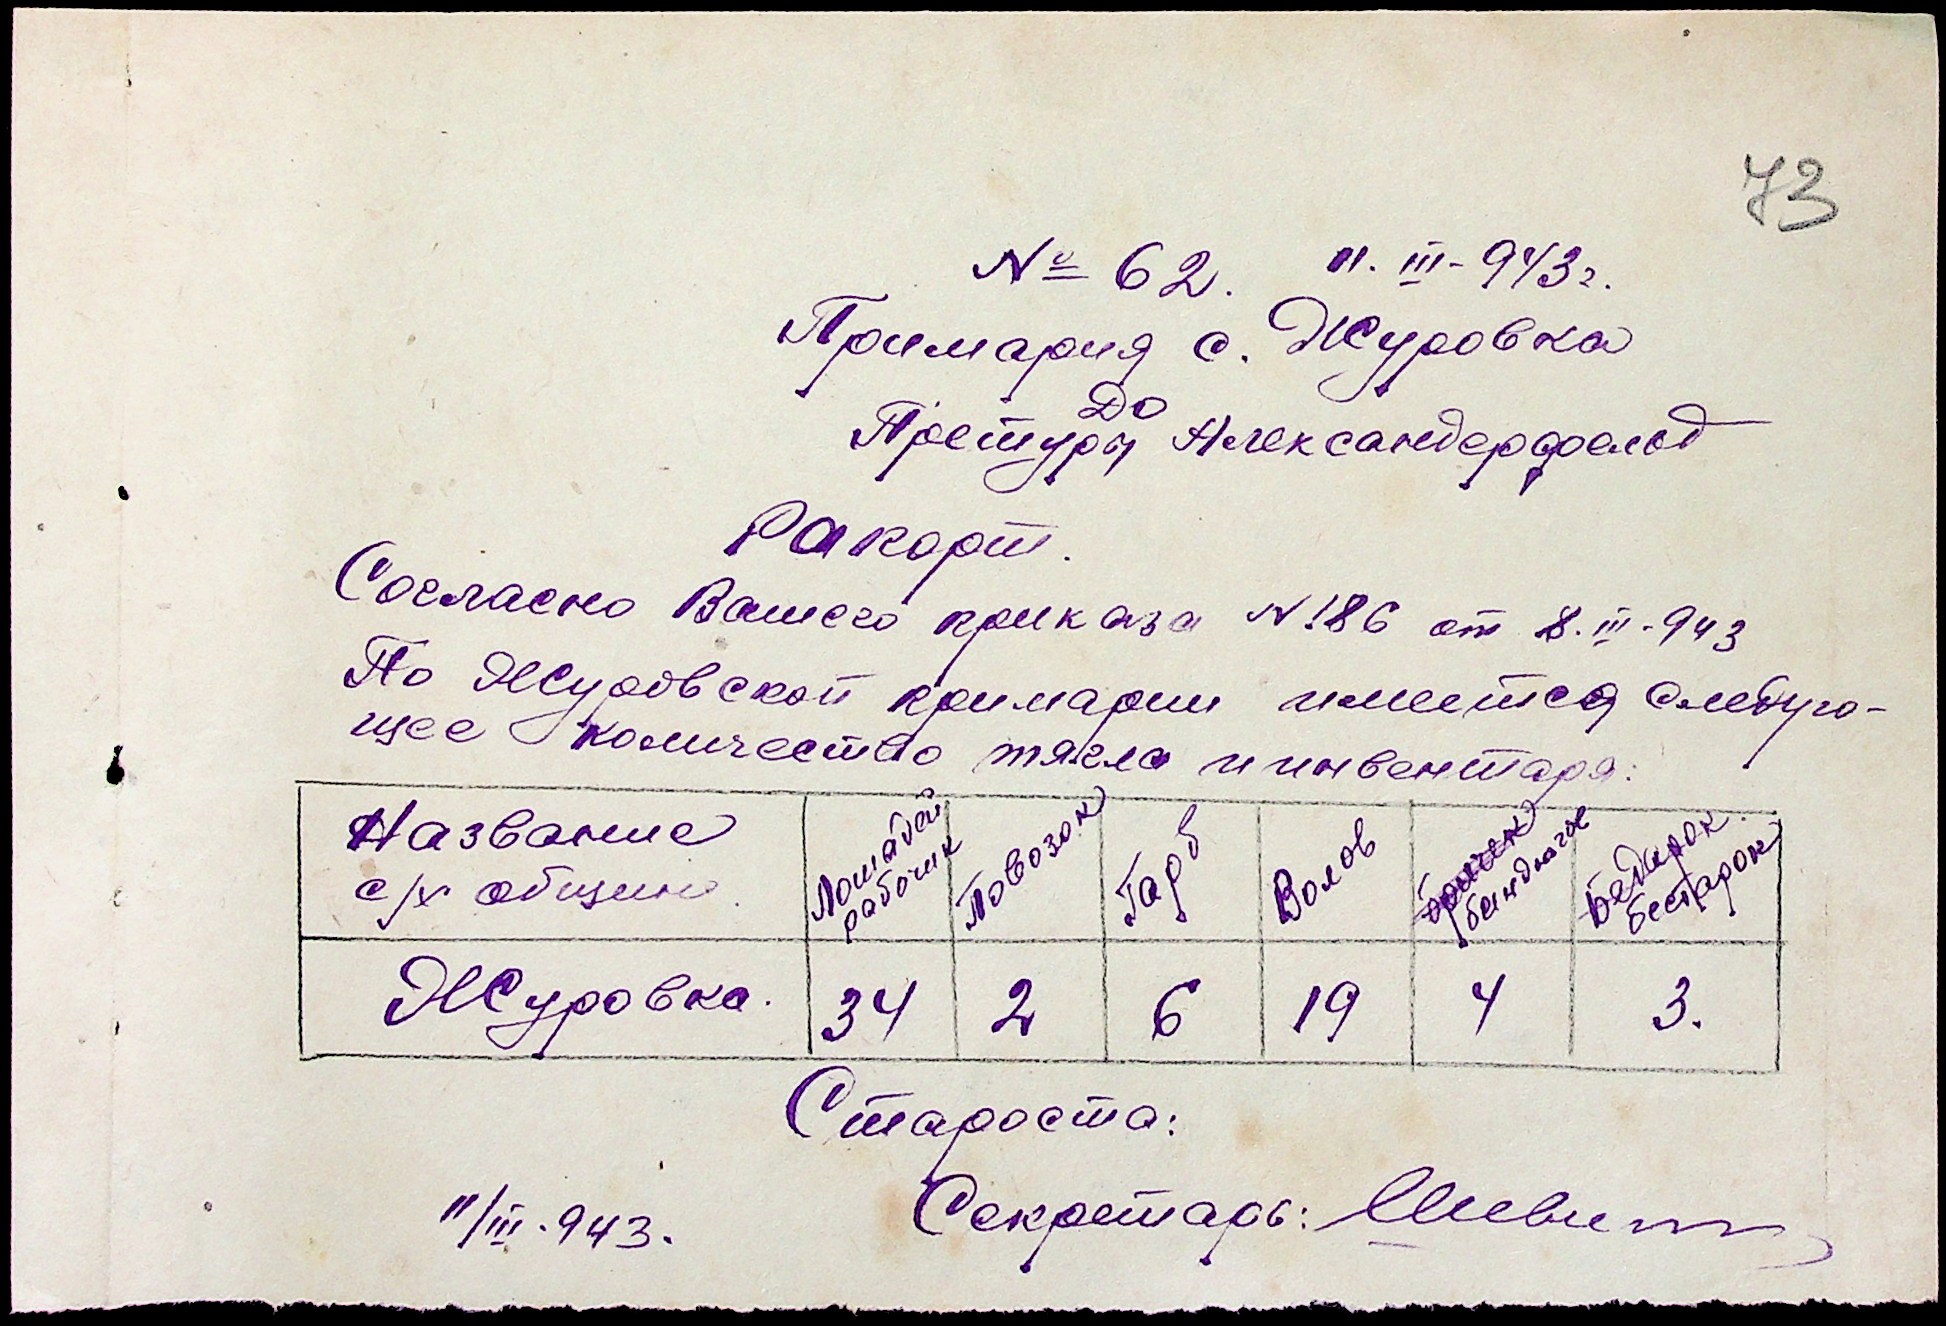 73
№ 62. 11. III - 943 г.
Примария с. Журовка
До
Претуры Александерфельд
Рапорт.
Согласно Вашего приказа N 186 от 8. III - 943
По Журовской примарии имеется следую-
щее количество тягла и инвентаря:
Название с/х общин. Лошадей рабочих Повозок Гарб Волов бричек Бедарок бестарок
Журовка. 34 2 6 19 4 3.
Староста:
Секретарь:
11/III. 943.